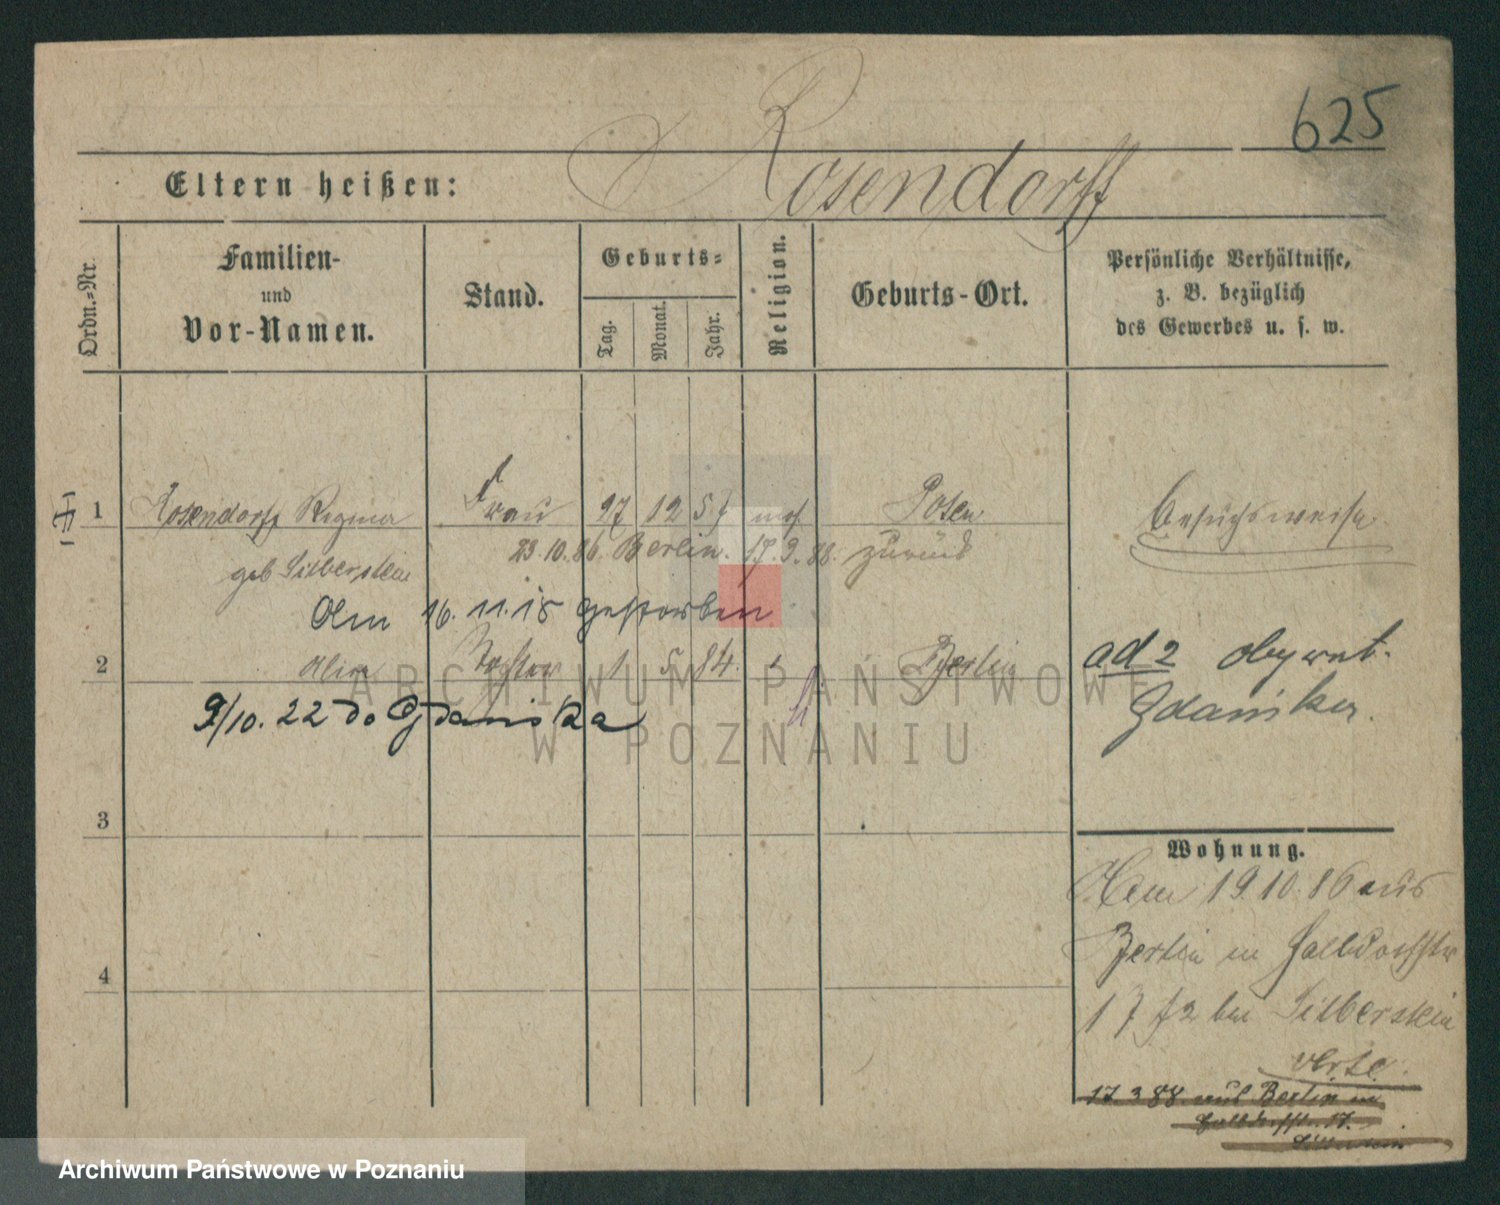 625
Rosendorff
Eltern heißen:
Ordn.=Nr.
Familien-
und
Vor-Namen.
Stand.
Geburts=
Tag.
Monat.
Jahr.
Religion.
Geburts-Ort.
Persönliche Verhältnisse,
z. B. bezüglich
des Gewerbes u. s. w.
1 Rosendorff Regina Frau 27 12 57 mos. Posen
Besuchsweise
23.10.86. Berlin. 17.3.88. zurück
geb Silberstein
Am 16.11.15 gestorben
2 Tochter 1 5 84. Berlin
9/10.22 do Gdańska
ad 2 obywat.
Gdańska.
3
Wohnung.
Am 19.10.86 aus
Berlin in Halbdorfstr
17 bei Silberstein
verte.
17.3 88 aus Berlin in
Halbdorfstr. 17.
Silberstein
4
ARCHIWUM PAŃSTWOWE
W POZNANIU
Archiwum Państwowe w Poznaniu